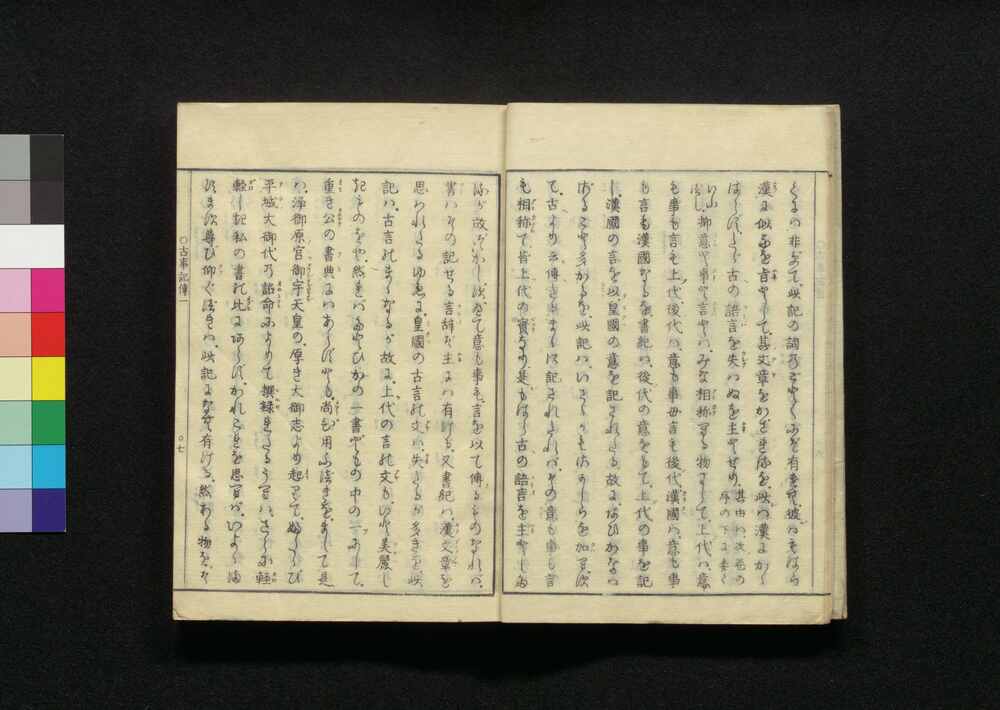 漢に似るを旨として、其文章をかざれるを、此は漢にかゝ
はらず、たゞ古の語言を失はぬを主とせり、其由は次巻の序の下に委く
いふべし、抑意と事と言とは、みな相稱へる物にして、上代は、意
も事も言も上代、後代は、意も事も言も後代、漢國は、意も事
も言も漢國なるを、書紀は、後代の意をもて、上代の事を記
し、漢國の言を以、皇國の意を記されたる故に、あひかなは
ざること多かるを、此記は、いさゝかもさかしらを加へず
て、古より云傳たるまゝに記されたれば、その意も事も言
も相稱て、皆上代の實なり、是もはら古の語言を主とした
るが故ぞかし、すべて意も事も、言を以て傳るものなれば、
書はその記せる言辭ぞ主には有ける、又書紀は、漢文章を
思はれたるゆゑに、皇國の古言の文は、失たるが多きを、此
記は、古言のまゝなるが故に、上代の言の文も、いと美麗し
きものをや、然れば たとひかの一書どもの中の一つにして、
重き公の書典にはあらずとも、尚尊用ふべきを、まして是
は、淨御原宮御宇天皇の、厚き大御志より起りて、
平城大御代の詔命によりて、撰録れたるうへは、さらに輕
輕しき私の書の比にあらず、かれこれを思へば、いよゝま
すます尊び仰ぐべきは、此記になむ有ける、然あるものを、そ
〇古事記傳一
〇七